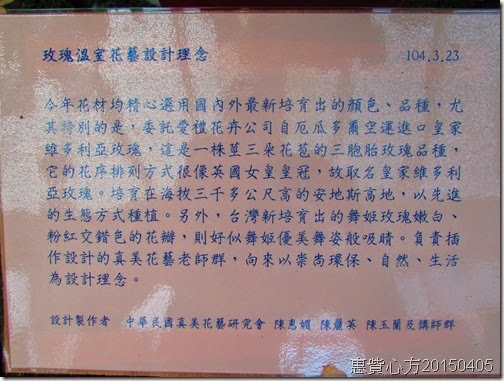 玫瑰溫室花藝設計理念 104.3.23
今年花材均精心選用國內外最新培育出的顏色、品種，尤
其特別的是，委託愛禮花卉公司自厄瓜多爾空運進口皇家
維多利亞玫瑰，這是一株莖三朵花苞的三胞胎玫瑰品種，
它的花序排列方式很像英國女皇皇冠，故取名皇家維多利
亞玫瑰。培育在海拔三千多公尺高的安地斯高地，以先進
的生態方式種植。另外，台灣新培育出的舞姬玫瑰嫩白、
粉紅交錯色的花瓣，則好似舞姬優美舞姿般吸睛。負責插
作設計的真美花藝老師群，向來以崇尚環保、自然、生活
為設計理念。
設計製作者 中華民國真美花藝研究會 陳惠媚 陳麗英 陳玉蘭及講師群
惠貲心方20150405